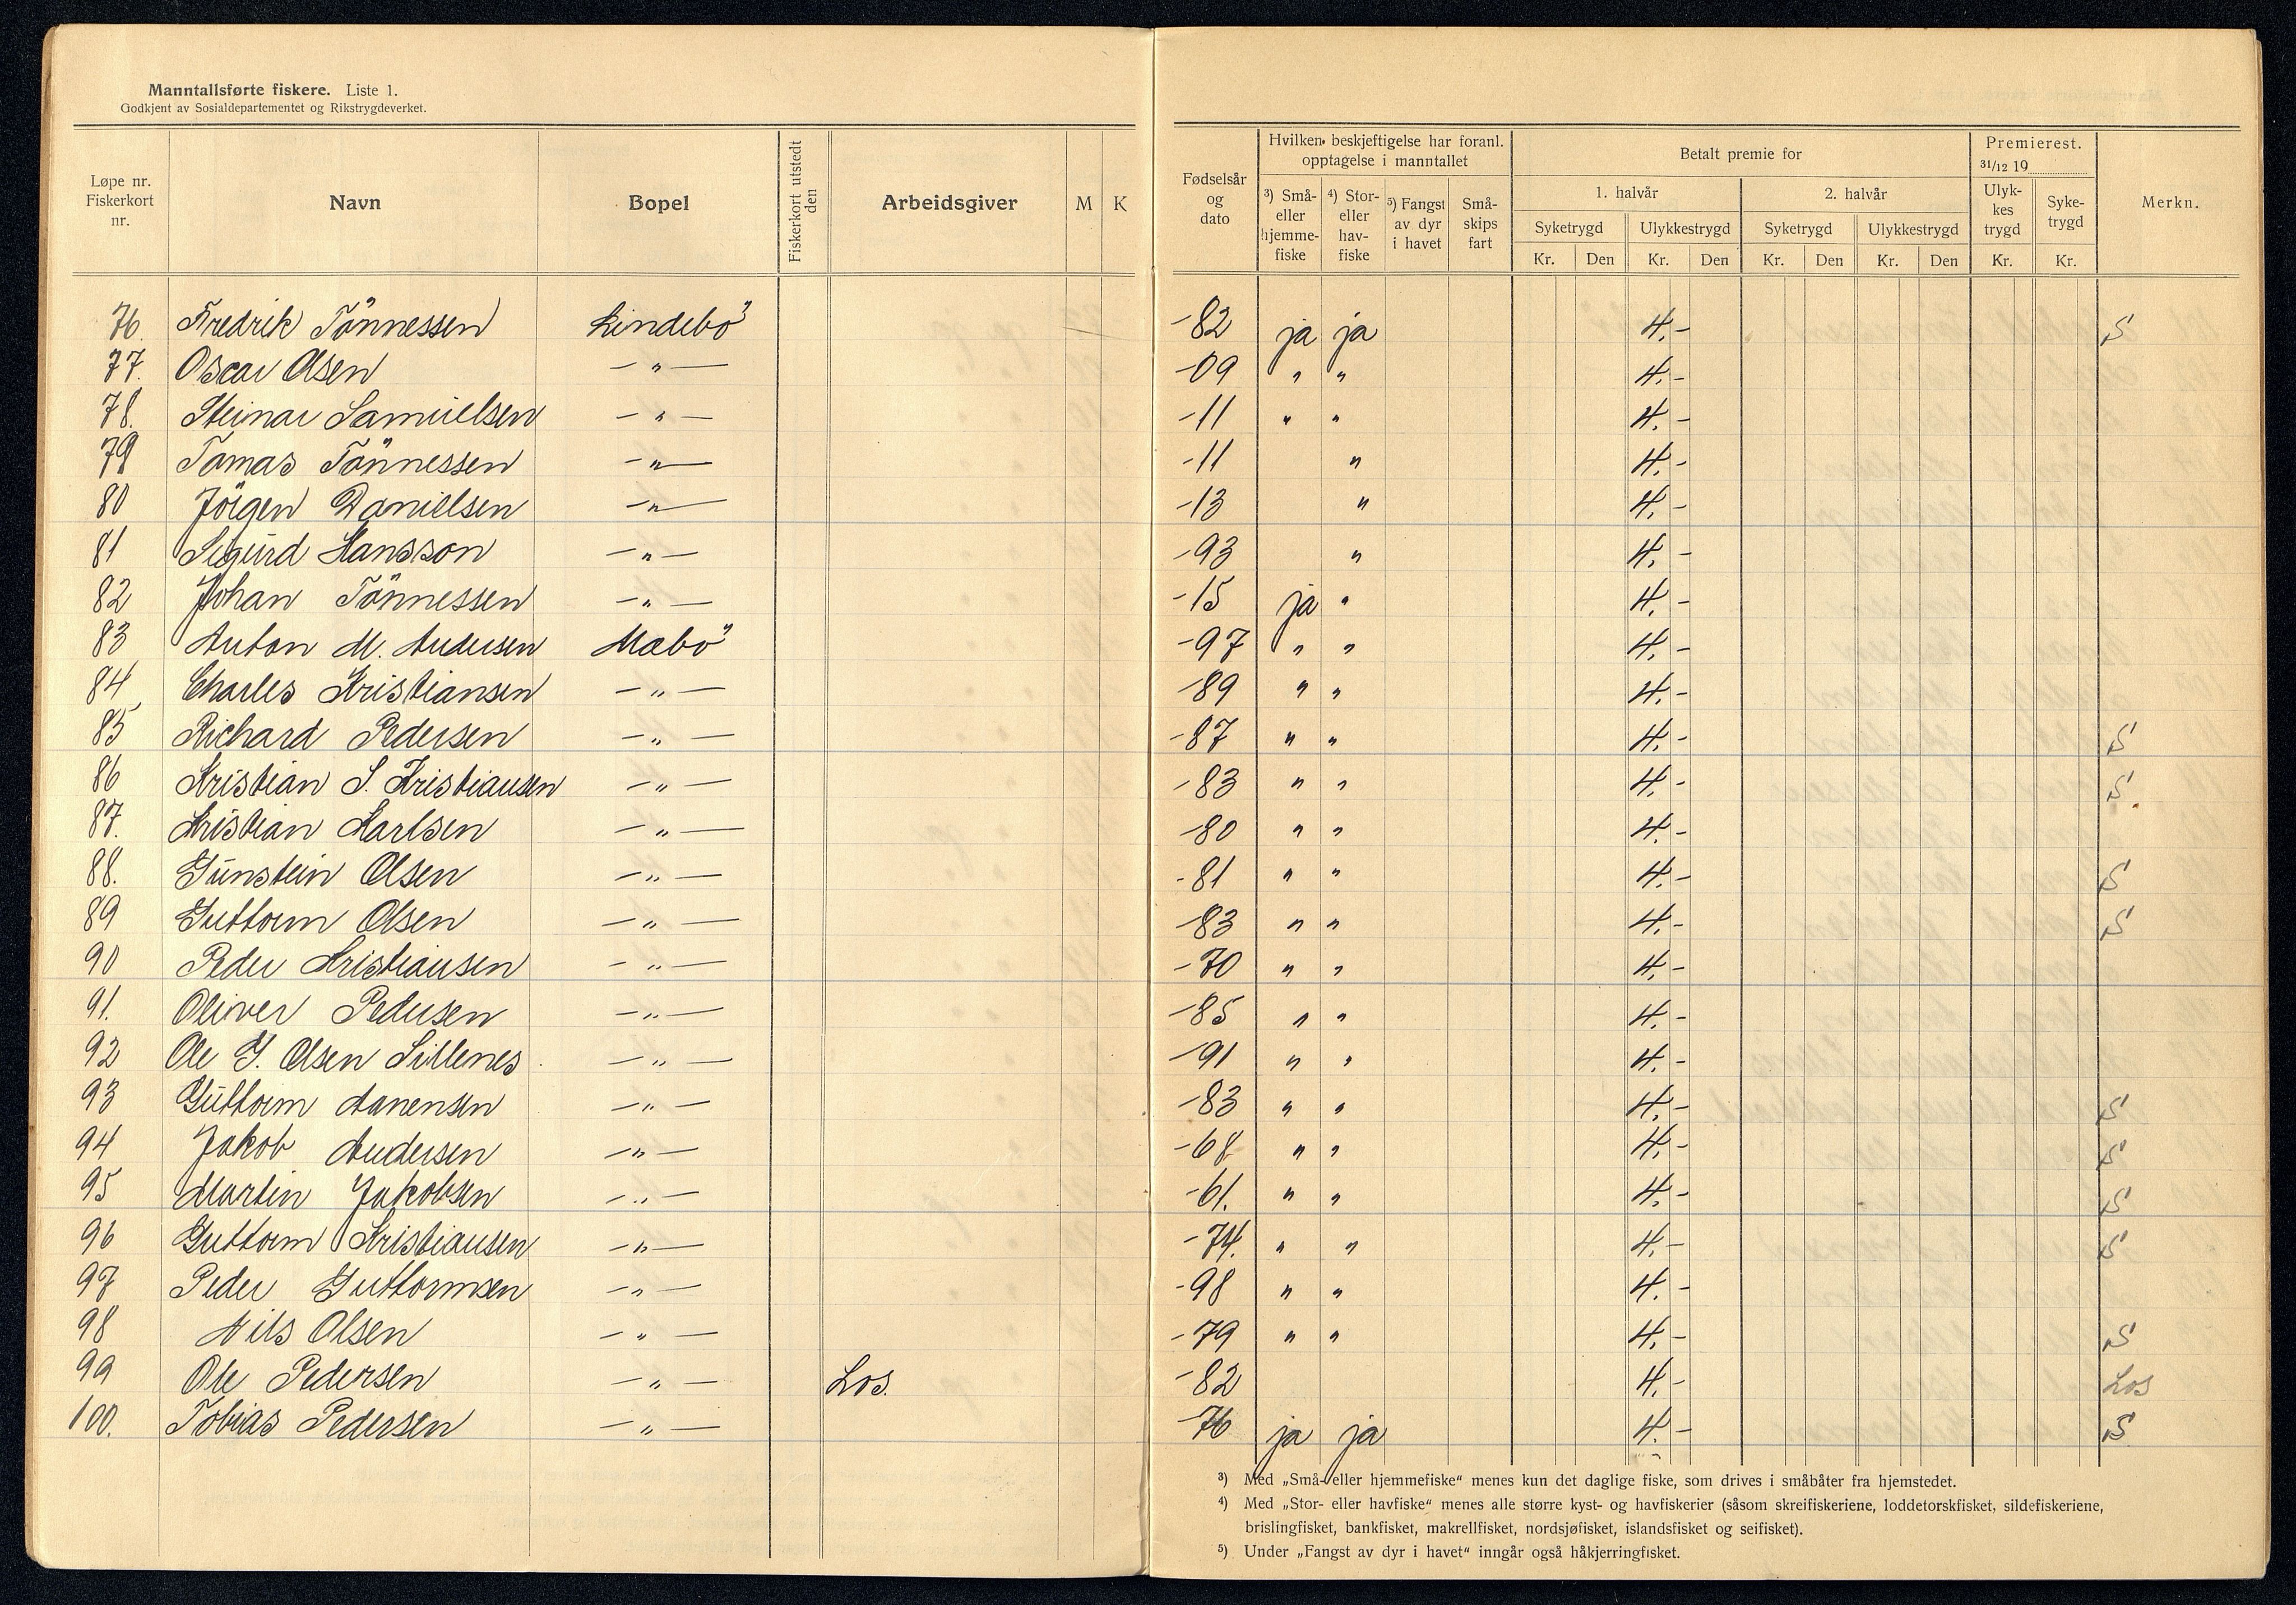 Manntallsførte fiskere. Liste 1.
Godkjent av Sosialdepartementet og Rikstrygdeverket.
Løpe nr. Fiskerkort nr. | Navn | Bopel | Fiskerkort utstedt den | Arbeidsgiver | M | K | Fødselsår og dato | Hvilken beskjeftigelse har foranl. opptagelse i manntallet | Betalt premie for | Premierest. 31/12 19 | Merkn.
3) Små- eller hjemme-fiske | 4) Stor- eller hav-fiske | 5) Fangst av dyr i havet | Små-skips fart | 1. halvår | 2. halvår | Ulyk-kes trygd | Syke-trygd
Syketrygd | Ulykkestrygd | Syketrygd | Ulykkestrygd
Kr. | Den | Kr. | Den | Kr. | Den | Kr. | Den | Kr. | Kr.
76. Fredrik Tönnessen Lindebö -82 ja ja 4.- S
77. Oscar Olsen -"- -09 " " 4.-
78. Steinar Samuelsen -"- -11 " " 4.-
79 Tomas Tönnessen -"- -11 " 4.-
80 Jörgen Danielsen -"- -13 " 4.-
81 Sigurd Hansson -"- -93 " 4.-
82 Johan Tönnessen -"- -15 ja " 4.-
83 Anton M. Andersen Mæbö -97 " " 4.-
84 Charles Kristiansen -"- -89 " " 4.-
85 Richard Pedersen -"- -87 " " 4.- S
86 Kristian S. Kristiansen -"- -83 " " 4.- S.
87. Kristian Karlsen -"- -80 " " 4.-
88. Gunstein Olsen -"- -81 " " 4.- S
89 Guttorm Olsen -"- -83 " " 4.- S
90 Peder Kristiansen -"- -70 " " 4.-
91. Oliver Pedersen -"- -85 " " 4.-
92 Ole G. Olsen Sillenes -"- -91 " " 4.-
93 Guttorm Aanensen -"- -83 " " 4.- S
94 Jakob Andersen -"- -68 " " 4.- S
95 Martin Jakobsen -"- -61. " " 4.- S
96 Guttorm Kristiansen -"- -74. " " 4.- S
97 Peder Guttormsen -"- -98 " " 4.-
98 Nils Olsen -"- -79 " " 4.- S
99 Ole Pedersen -"- Los. -82 4.- Los
100. Tobias Pedersen -"- -76 ja ja 4.- S
3) Med „Små- eller hjemmefiske" menes kun det daglige fiske, som drives i småbåter fra hjemstedet.
4) Med „Stor- eller havfiske" menes alle større kyst- og havfiskerier (såsom skreifiskeriene, loddetorskfisket, sildefiskeriene,
brislingfisket, bankfisket, makrellfisket, nordsjøfisket, islandsfisket og seifisket).
5) Under „Fangst av dyr i havet" inngår også håkjerringfisket.